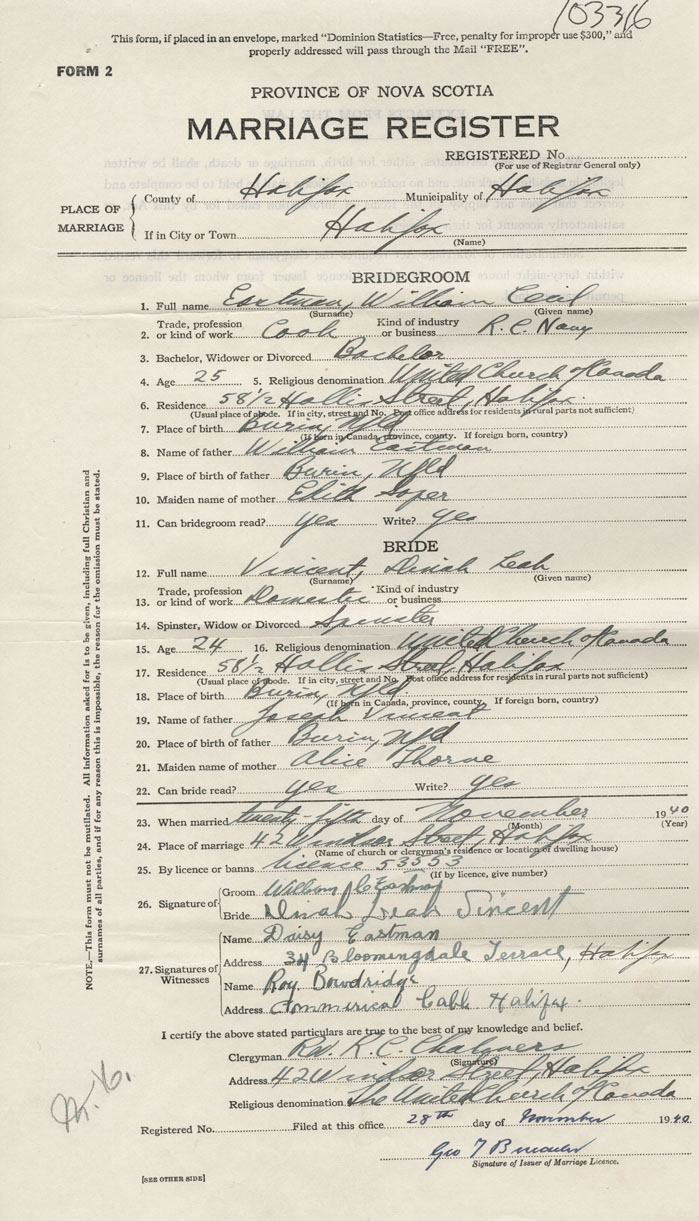 103316
This form, if placed in an envelope, marked "Dominion Statistics—Free, penalty for improper use $300," and
properly addressed will pass through the Mail "FREE".
FORM 2
PROVINCE OF NOVA SCOTIA
MARRIAGE REGISTER
REGISTERED No.
(For use of Registrar General only)
PLACE OF MARRIAGE
County of Halifax Municipality of Halifax
If in City or Town Halifax
(Name)
BRIDEGROOM
1. Full name Eastman, William Cecil
(Surname) (Given name)
2. Trade, profession or kind of work Cook Kind of industry or business R.C. Navy
3. Bachelor, Widower or Divorced Bachelor
4. Age 25 5. Religious denomination United Church of Canada
6. Residence 58 1/2 Hollis Street, Halifax.
(Usual place of abode. If in city, street and No. Post office address for residents in rural parts not sufficient)
7. Place of birth Burin, Nfld
(If born in Canada, province, county. If foreign born, country)
8. Name of father William Eastman
9. Place of birth of father Burin, Nfld
10. Maiden name of mother Edith Soper
11. Can bridegroom read? yes Write? yes
BRIDE
12. Full name Vincent, Dinah Leah
(Surname) (Given name)
13. Trade, profession or kind of work Domestic Kind of industry or business
14. Spinster, Widow or Divorced Spinster
15. Age 24 16. Religious denomination United Church of Canada
17. Residence 58 1/2 Hollis Street, Halifax
(Usual place of abode. If in city, street and No. Post office address for residents in rural parts not sufficient)
18. Place of birth Burin, Nfld
(If born in Canada, province, county. If foreign born, country)
19. Name of father Joseph Vincent
20. Place of birth of father Burin, Nfld
21. Maiden name of mother Alice Thorne
22. Can bride read? yes Write? yes
23. When married twenty-fifth day of November 1940
(Month) (Year)
24. Place of marriage 42 Windsor Street, Halifax
(Name of church or clergyman's residence or location of dwelling house)
25. By licence or banns licence 53553
(If by licence, give number)
26. Signature of
Groom William C Eastman
Bride Dinah Leah Vincent
27. Signatures of Witnesses
Name Daisy Eastman
Address 34 Bloomingdale Terrace, Halifax
Name Roy Bowdridge
Address Commerical Cable Halifax.
I certify the above stated particulars are true to the best of my knowledge and belief.
Clergyman Rev. R.C. Chalmers
(Signature)
Address 42 Windsor Street, Halifax
Religious denomination The United Church of Canada
Registered No. Filed at this office 28th day of November 1940.
Geo T
Signature of Issuer of Marriage Licence.
[SEE OTHER SIDE]
NOTE.—This form must not be mutilated. All information asked for is to be given, including full Christian and
surnames of all parties, and if for any reason this is impossible, the reason for the omission must be stated.